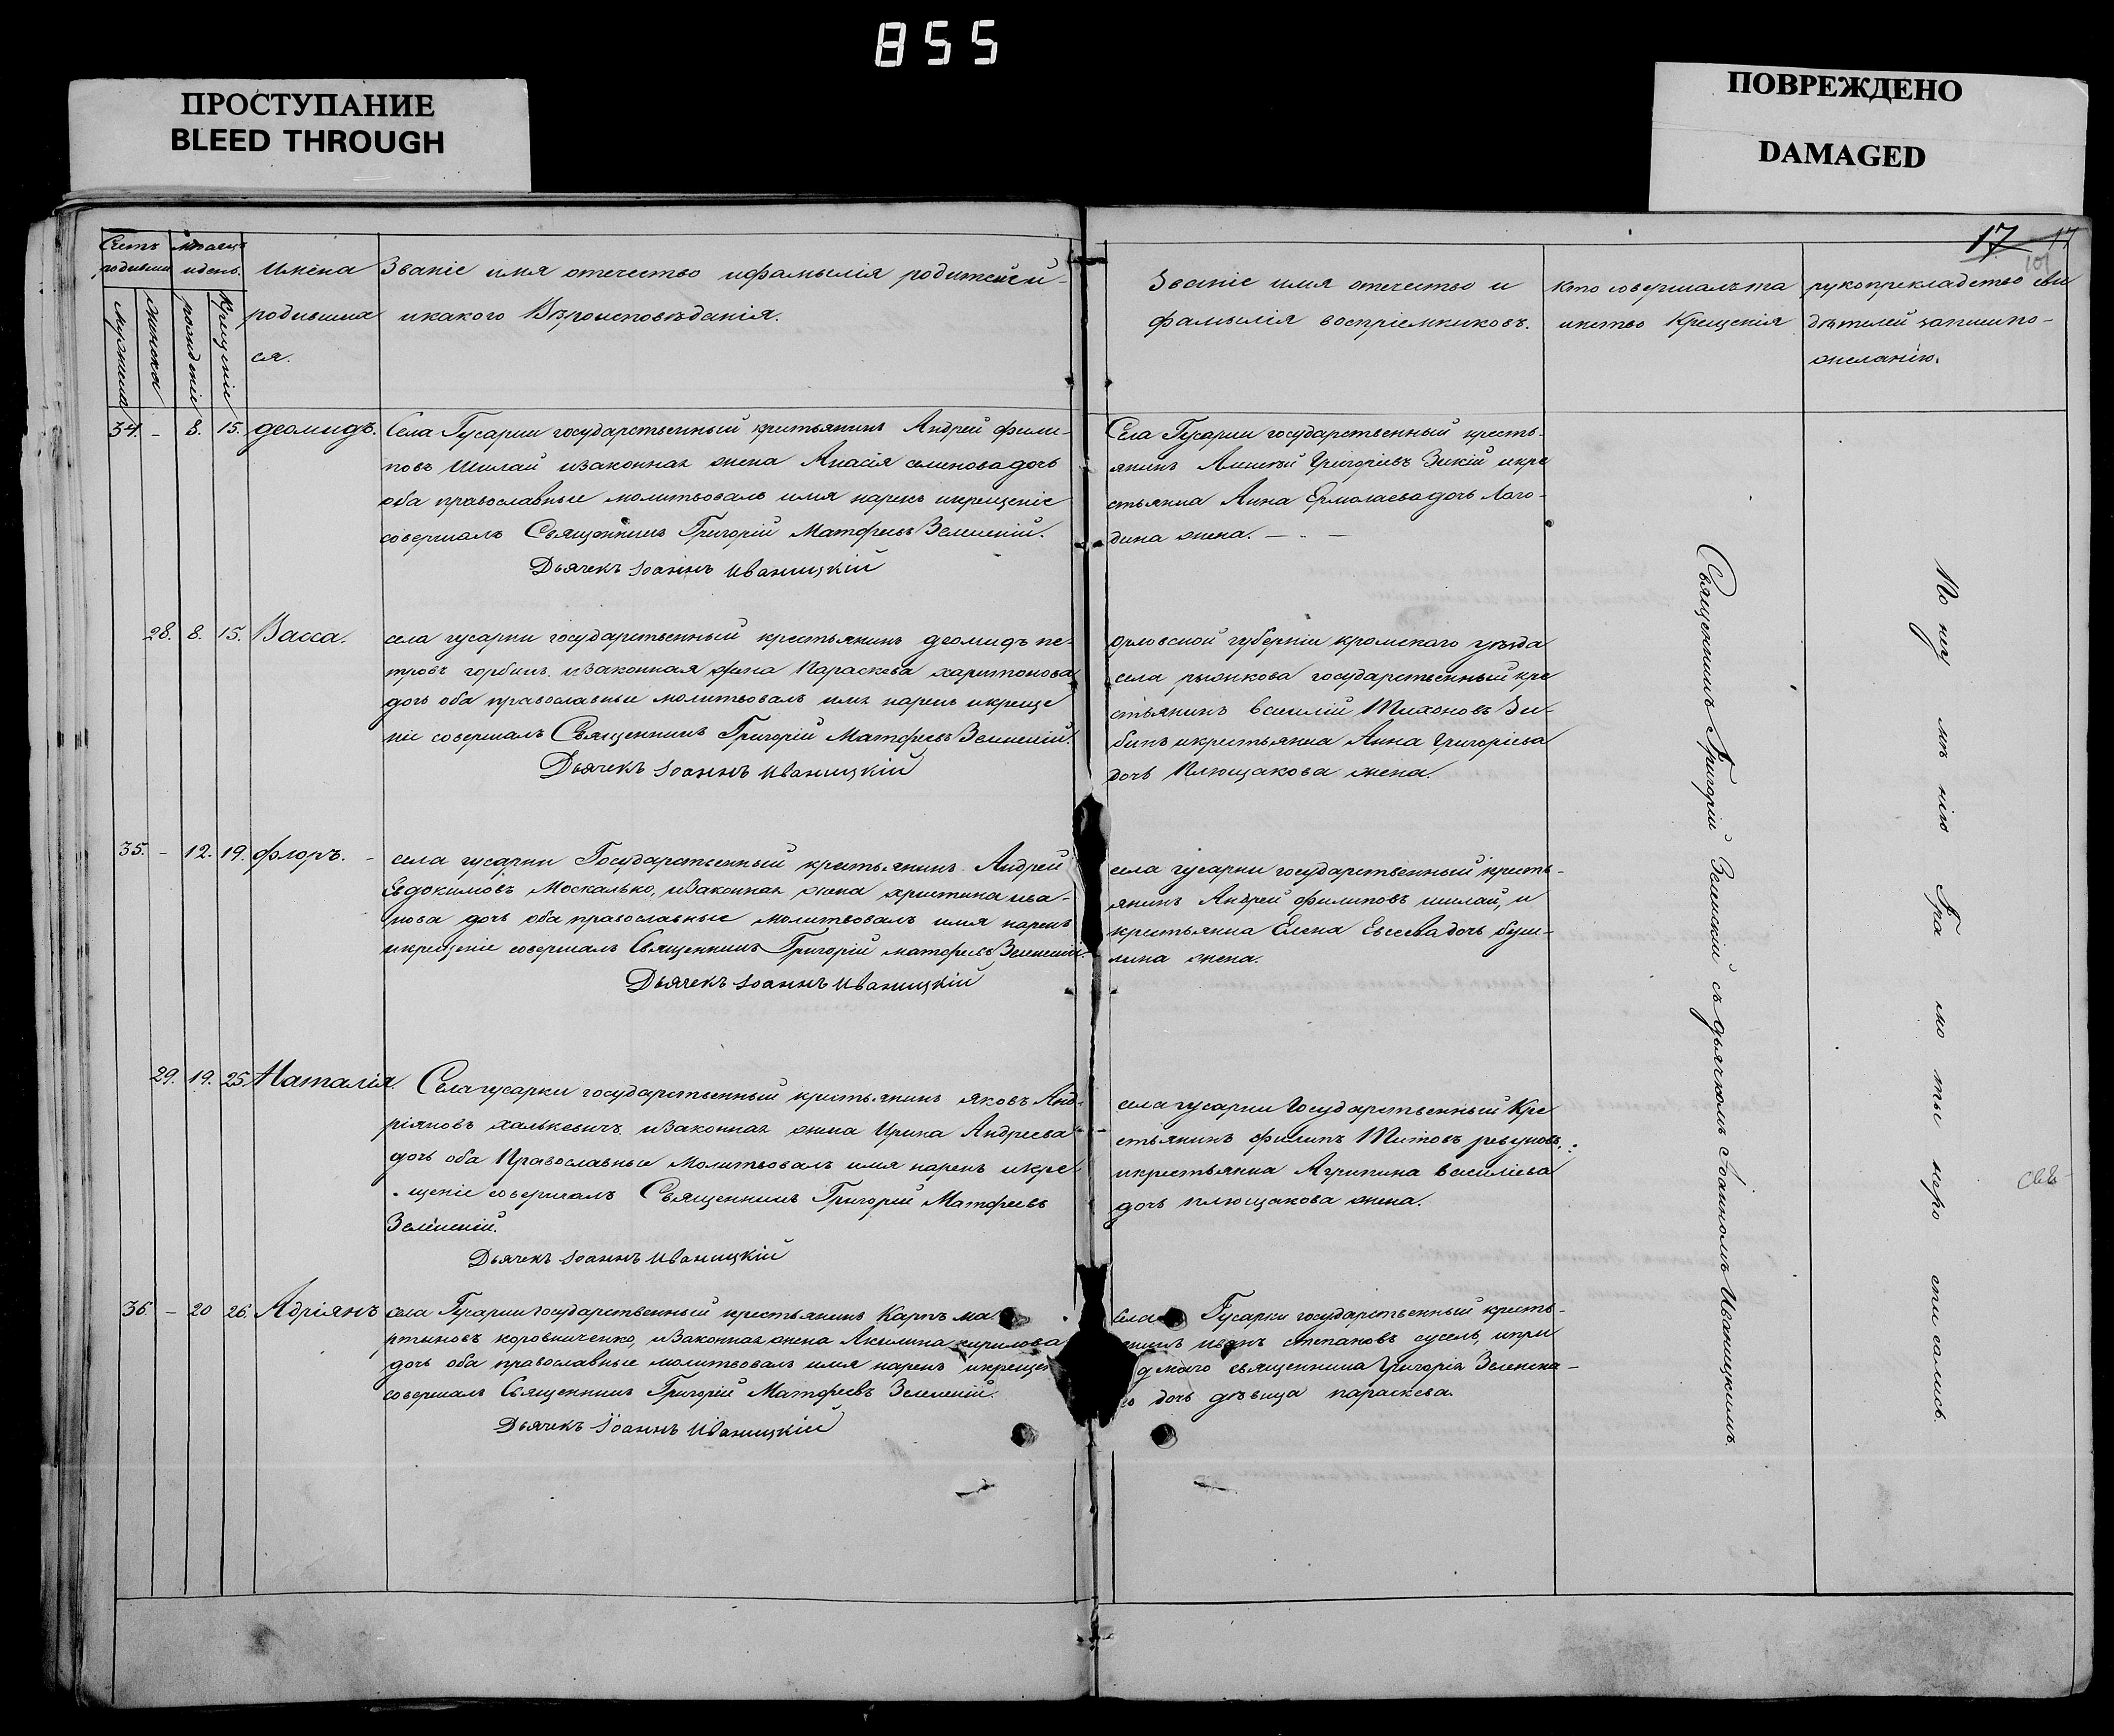 855
ПРОСТУПАНИЕ
BLEED THROUGH
ПОВРЕЖДЕНО
DAMAGED
17 17
101
Счетъ родивших
Мѣсяцъ и день.
мужеска
женска
рожденія
Крещенія
Имена
родившиа
ся.
Званіе имя отечество ифамылія родителей
икакого Вѣроисповѣданія.
Званіе имя отечество и
фамылія воспріемниковъ.
Кто совершалъ та
инство Крещенія
рукоприкладство сви
дѣтелей записи по-
желанію.
34. - 8. 15. Деомидъ.
Села Гусарки государственный крестьянинъ Андрей Фили-
повъ Шилай изаконная жена Анасія семенова дочь
оба православные молитвовалъ имя нарекъ икрещеніе
совершалъ Священникъ Григорій Матфеевъ Зеленскій.
Дьячекъ Іоаннъ Иваницкій
Села Гусарки государственный кресть-
янинъ Алексѣй Григоріевъ Зикій икре
стьянка Анна Ермолаева дочь Лаго-
дина жена. - . -
28. 8. 15. Васса.
села гусарки государственный крестьянинъ деомидъ пе-
тровъ горбинъ. изаконная жена Параскева харитонова
дочь оба православные молитвовалъ имя нарекъ икреще
ніе совершалъ Священникъ Григорій Матфеевъ Зеленскій.
Дьячекъ Іоаннъ Иваницкій
орловской губерніи кромского уѣзда
села рыжкова государственный кре
стьянинъ василій Тихоновъ Зи-
бинъ икрестьянка Анна Григоріева
дочь Плющакова жена.
35. - 12. 19. Флоръ. -
села гусарки Государственный крестьянинъ Андрей
Евдокимовъ Москалько, изаконная жена христина ива-
нова дочь оба православные молитвовалъ имя нарекъ
икрещеніе совершалъ Священникъ Григорій матфеевъ Зеленскій.
Дьячекъ Іоаннъ Иваницкій
села гусарки государственный кресть-
янинъ Андрей филиповъ шилай, и
крестьянка Елена Евсеева дочь буш-
лина жена.
29. 19. 25. Наталія.
Села гусарки государственный крестьянинъ яковъ Анд-
ріяновъ халькевичъ изаконная жена Ирина Андреева
дочь оба Православные молитвовалъ имя нарекъ икре-
щеніе совершалъ Священникъ Григорій Матфеевъ
Зеленскій.
Дьячекъ Іоаннъ Иваницкій
села гусарки Государственный Кре
стьянинъ филипъ Титовъ ревуновъ,
икрестьянка Агрипина василіева
дочь плющакова жена.
36. - 20 26. Адріянъ
села Гусарки государственный крестьянинъ Карпъ ма
ртыновъ коровниченко, изаконная жена Акилина кирилова
дочь оба православные молитвовалъ имя нарекъ икрещен
совершалъ Священникъ Григорій Матфеевъ Зеленскій.
Дьячекъ Іоаннъ Иваницкій
села Гусарки государственный кресть-
янинъ иванъ степановъ сусель, ипри
священника Григорія Зеленска-
го дочь дѣвица параскева.
Священникъ Григорій Зеленскій съ дьячкомъ Іоанномъ Иваницкимъ.
По неу мѣ нію Гра мо ты неро списались.